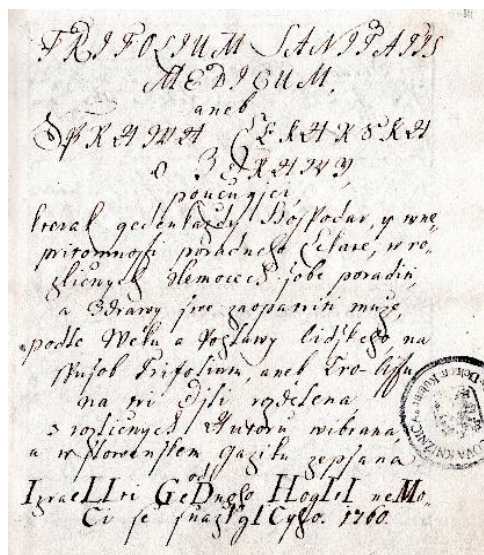 TRIFOLIUM SANITATIS
MEDICUM,
aneb
SPRAWA LEKARSKA
O ZDRAWY
poučugjci,
kterak gedenkazdy Hospodar, y w ne-
pritomnosti poradneho Lekare, w ro-
zlicnych Nemocech sobe poradit,
a Zdrawy swe zaopatriti muže,
podle Weku a Postawy lidskeho, na
spusob Trifolium, aneb Tro-listu
na tri Djli rozdelena
z rozlicnych Autorů wibrana,
a w slowenskem gaziku zepsana
od
IzraeLIti GeDnoho HogItI neMo-
Ci se snaZ gICyho. 1760.